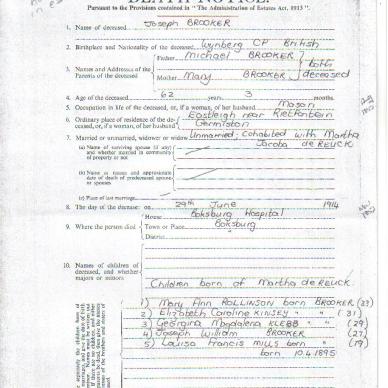 DEATH NOTICE.
Pursuant to the Provisions contained in "The Administration of Estates Act, 1913".
1. Name of deceased Joseph BROOKER
2. Birthplace and Nationality of the deceased Wynberg CP British
3. Names and Addresses of the Parents of the deceased
Father Michael BROOKER } both
Mother Mary BROOKER } deceased
4. Age of the deceased 62 years 3 months.
5. Occupation in life of the deceased, or, if a woman, of her husband Mason
6. Ordinary place of residence of the de-
ceased, or, if a woman, of her husband
Eastleigh near Rietfontein
Germiston
7. Married or unmarried, widower or widow Unmarried; cohabited with Martha
Jacoba de REUCK
(a) Name of surviving spouse (if any)
and whether married in community
of property or not
(b) Name or names and approximate
date of death of predeceased spouse
or spouses
(c) Place of last marriage
8. The day of the decease: on 29th June 1914
9. Where the person died
House Boksburg Hospital
Town or Place Boksburg
District
10. Names of children of
deceased, and whether
majors or minors
Children born of Martha de REUCK
1) Mary Ann ROLLINSON born BROOKER (33)
2) Elizabeth Caroline KINSEY " " (31)
3) Georgina Magdalena KLEBB " " (29)
4) Joseph William BROOKER (27)
5) Louisa Francis MILLS born " (19)
born 10.4.1895